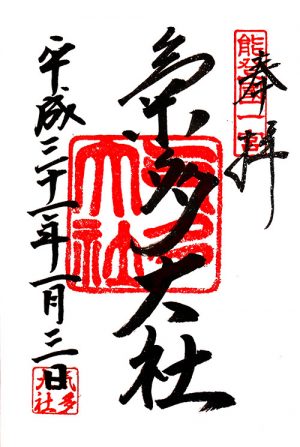 能登国一宮
奉拝
氣多大社
氣多大社
平成三十一年一月三日
氣多大社